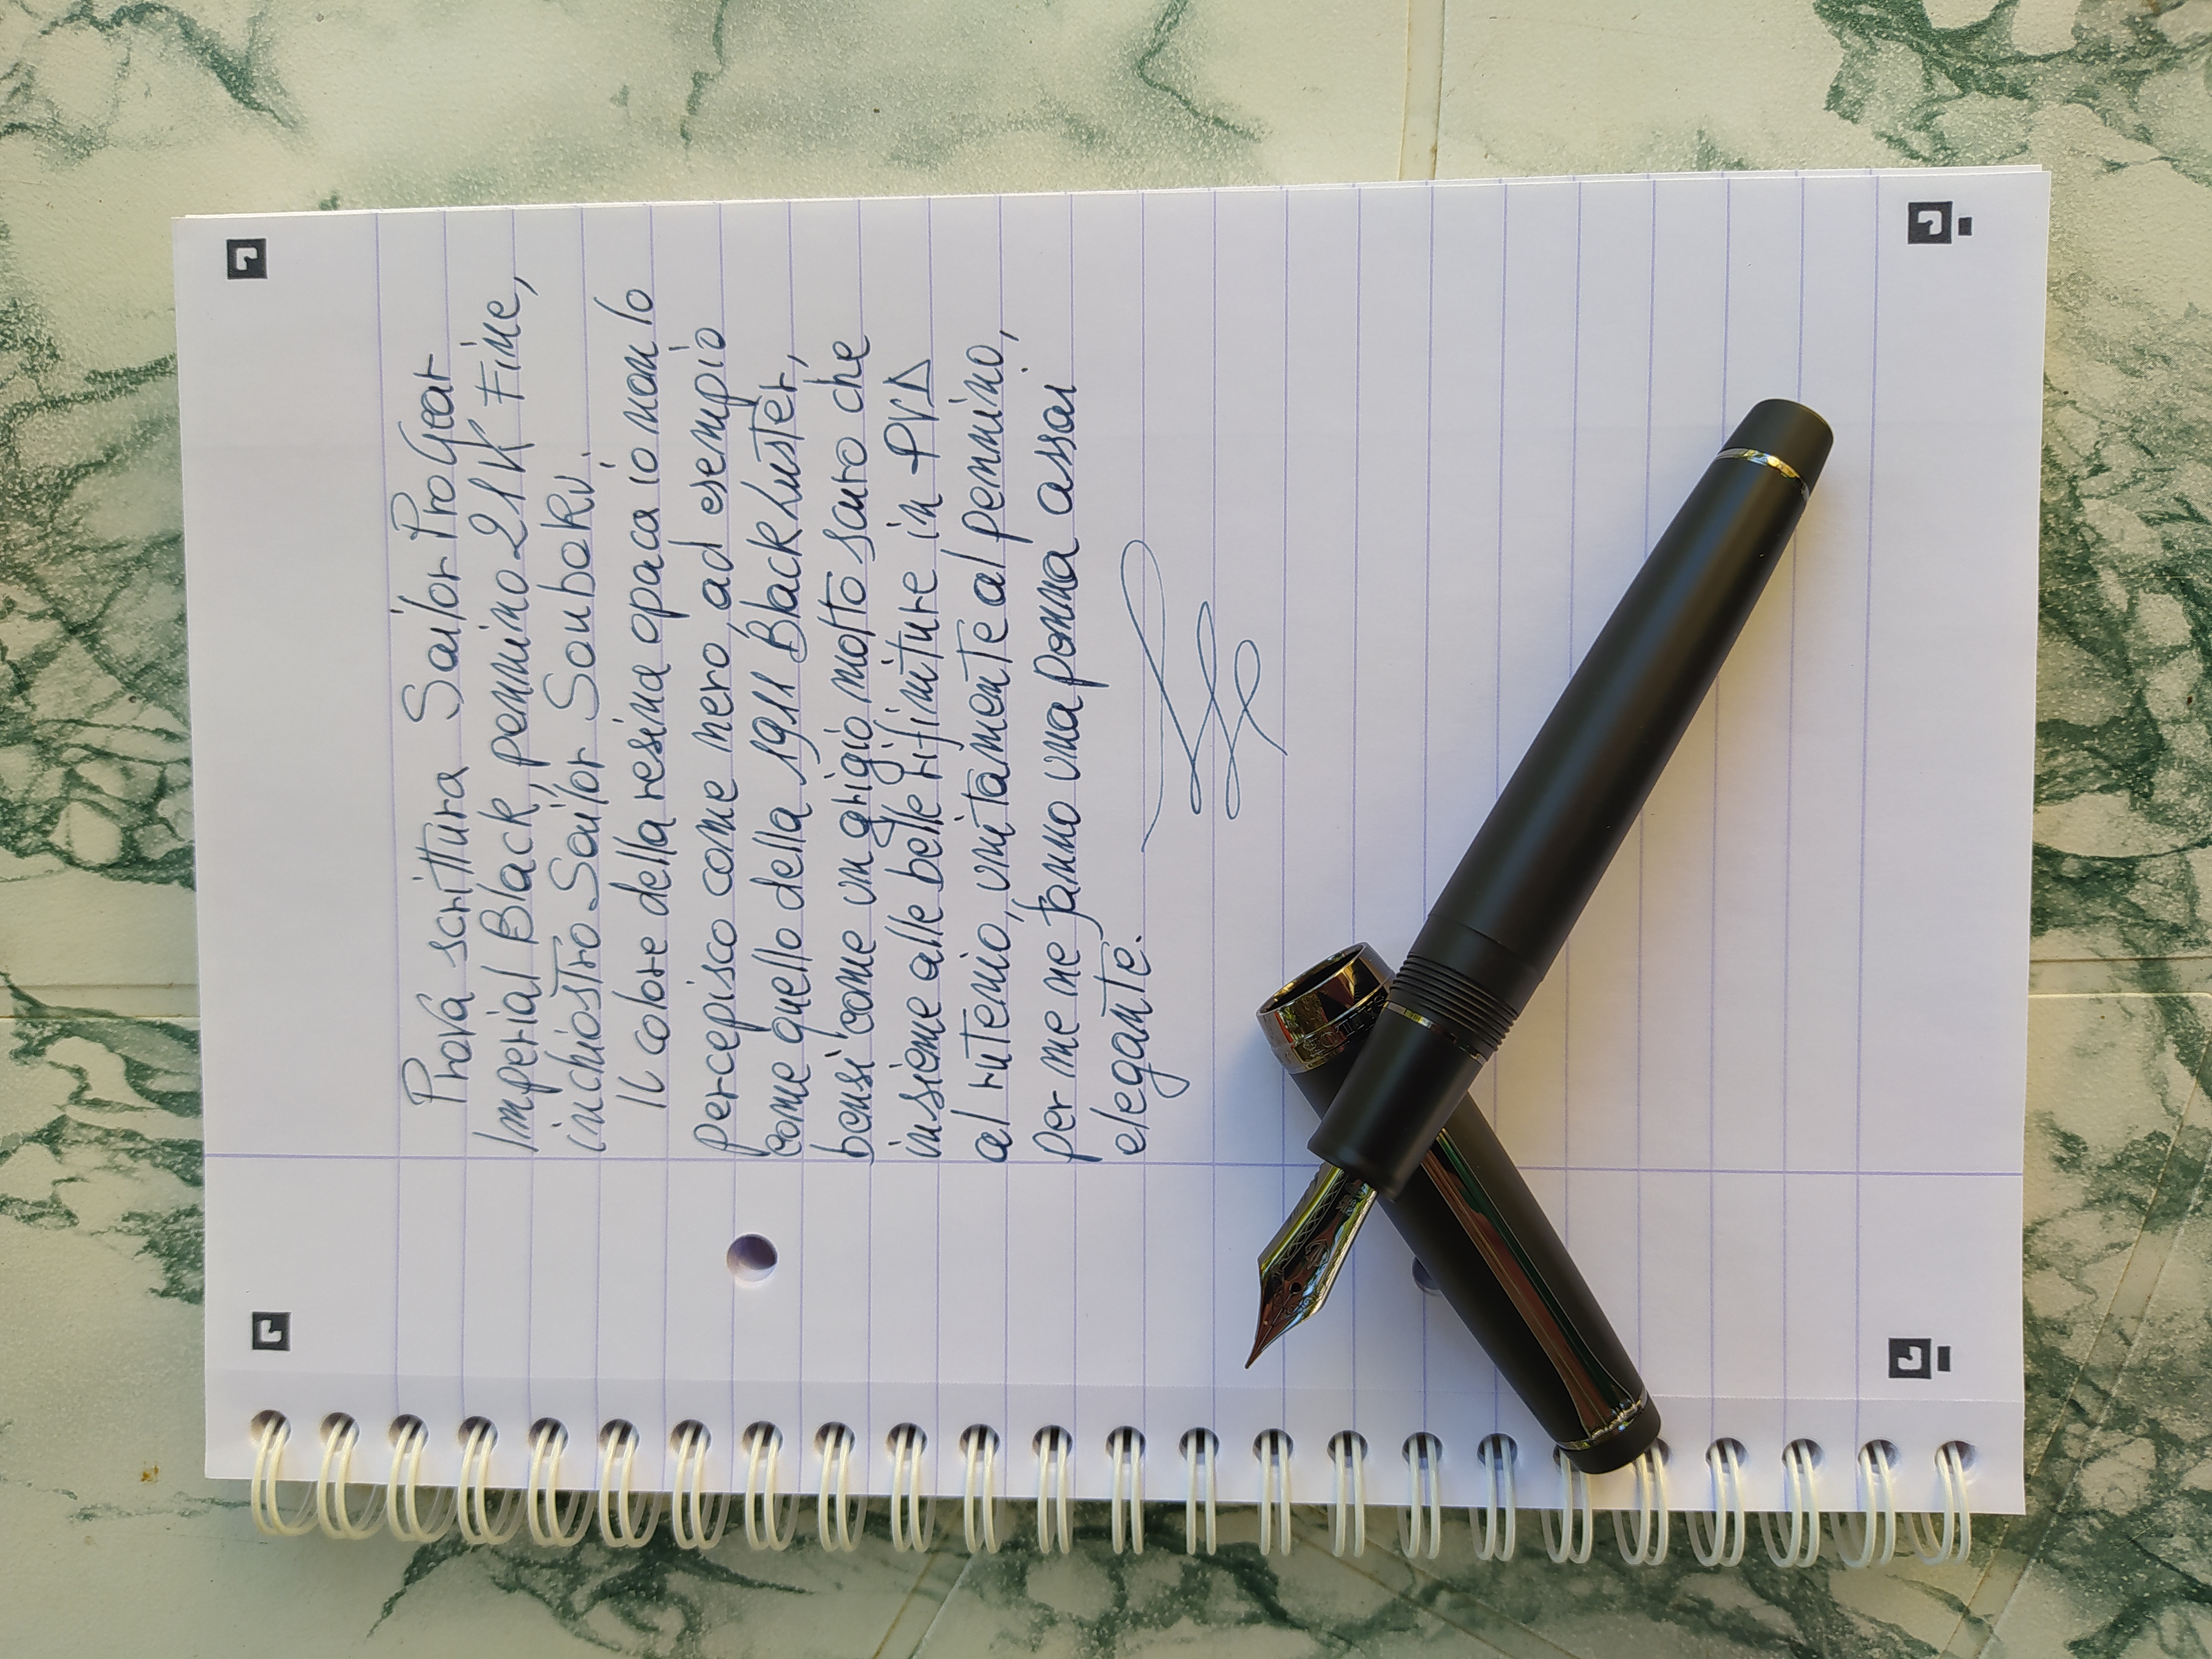 Prova scrittura Sailor ProGear
Imperial Black, pennino 21K Fine,
inchiostro Sailor Souboku.
Il colore della resina opaca io non lo
percepisco come nero, ad esempio
come quello della 1911 Black Luster,
bensi' come un grigio molto scuro che
insieme alle belle rifiniture in PVD
al rutenio, unitamente al pennino,
per me ne fanno una penna assai
elegante.